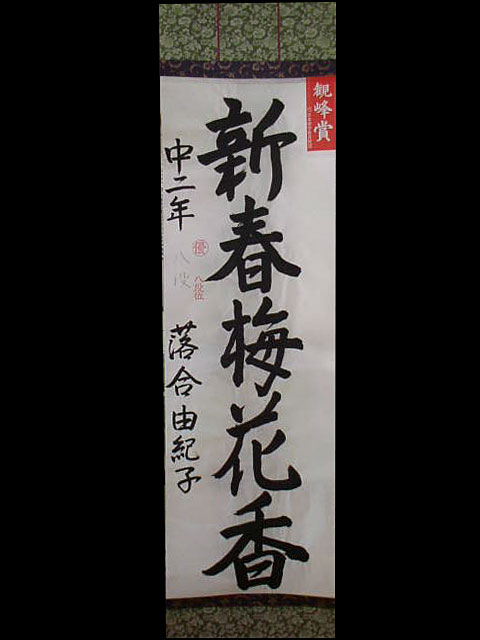 観峰賞
新春梅花香
中二年 落合由紀子
優
八段位
八段